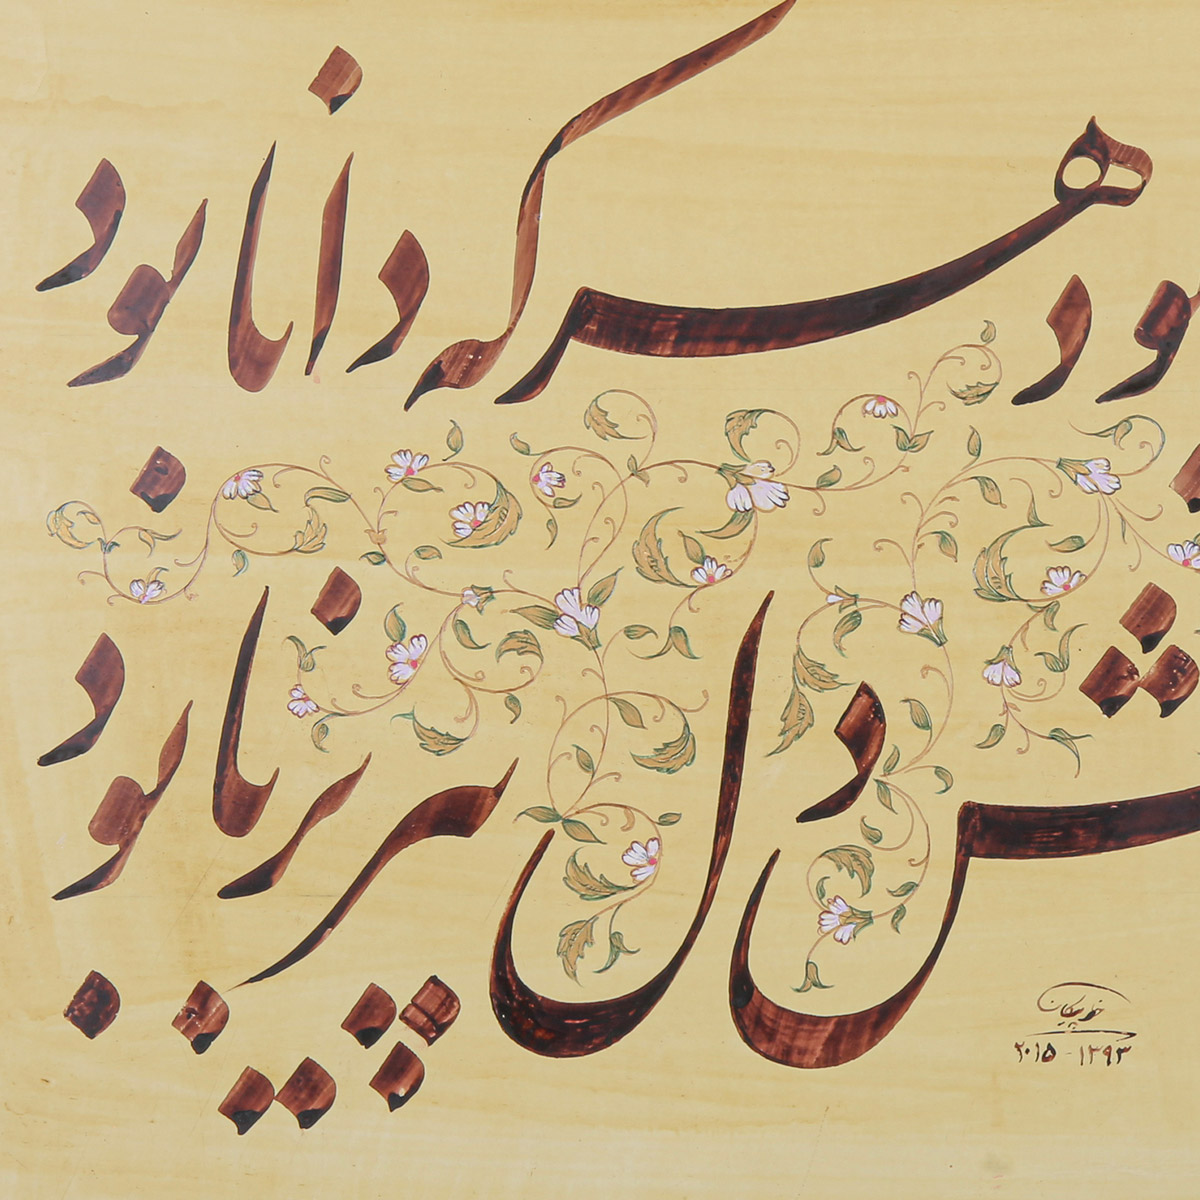 ود هر که دانا بود
ش دل پیر برنا بود
۲۰۱۵ - ۱۳۹۳